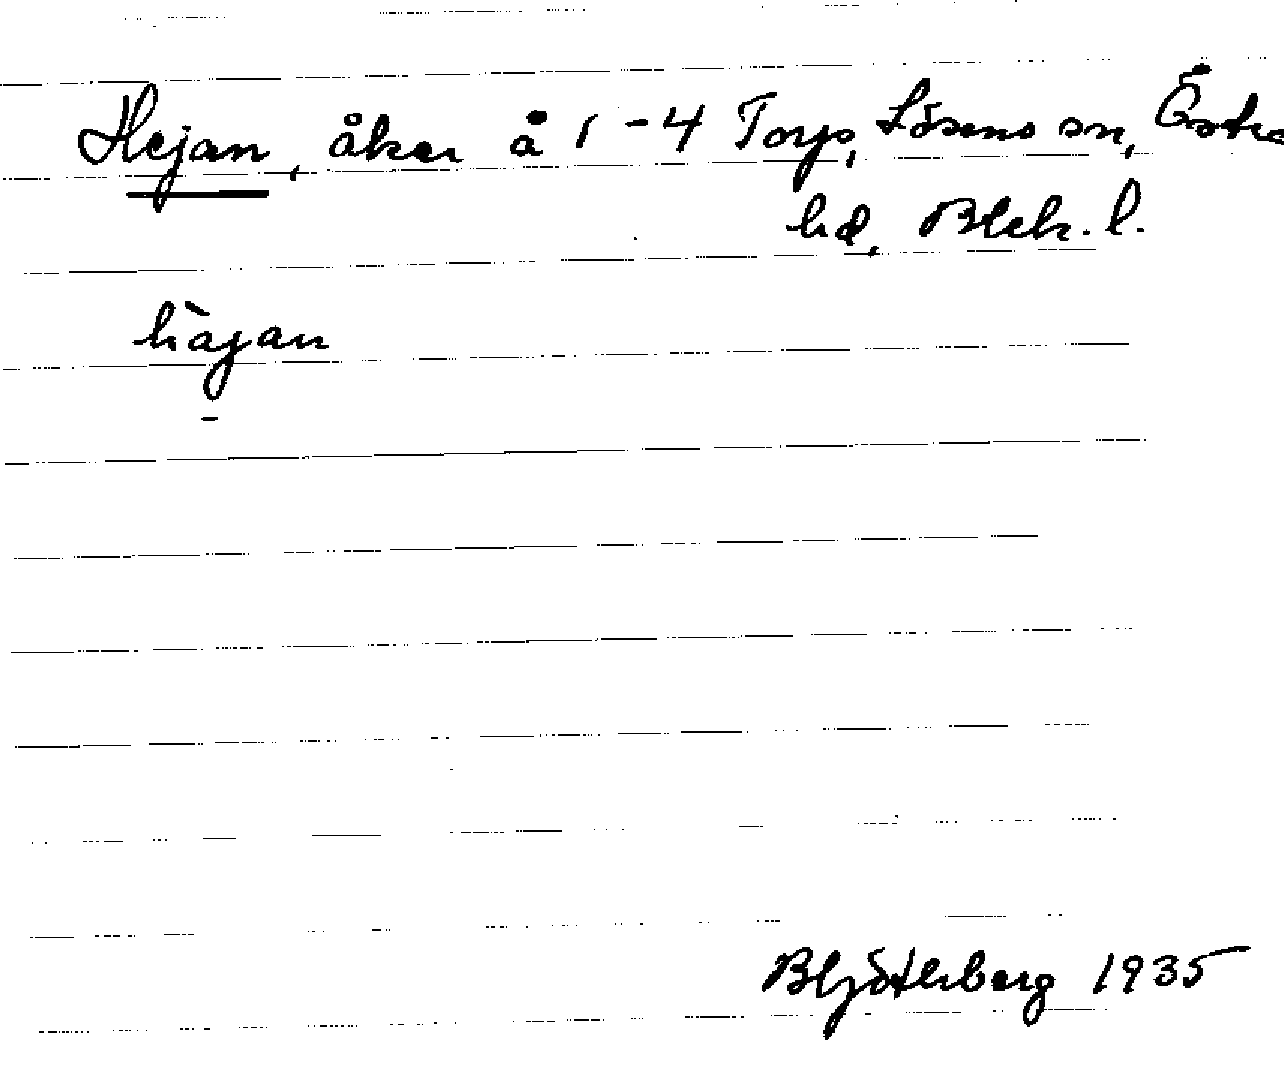 Hejan, åker å 1-4 Torp, Lösens sn, Östra
hd, Blek. l.
hàjan
B Hjötterberg 1935